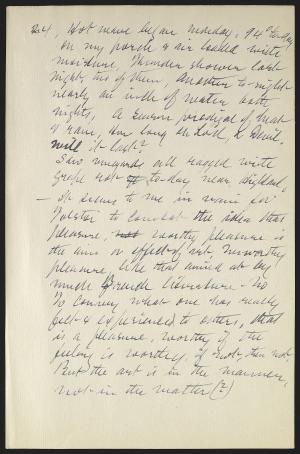 24, Hot wave began Monday. 94° to-day
on my porch & air loaded with
moisture, Thunder shower last
night, two of them, Another to-night
nearly an inch of water both
nights, A season prodigal of heat
& rain, how long oh Lord, or Devil,
will it last?
Saw vineyards all ragged with
grape rot to-day near Highland,
— It seems to me in vain for
Tolstoi to combat the idea that
pleasure, not worthy pleasure is
the aim or effect of art. Unworthy
pleasure, like that aimed at by
much French literature — no
To convey what one has really
felt & experienced to others, that
is a pleasure, worthy if the
feeling is worthy, if not then not.
But the art is in the manner,
not in the matter (?)